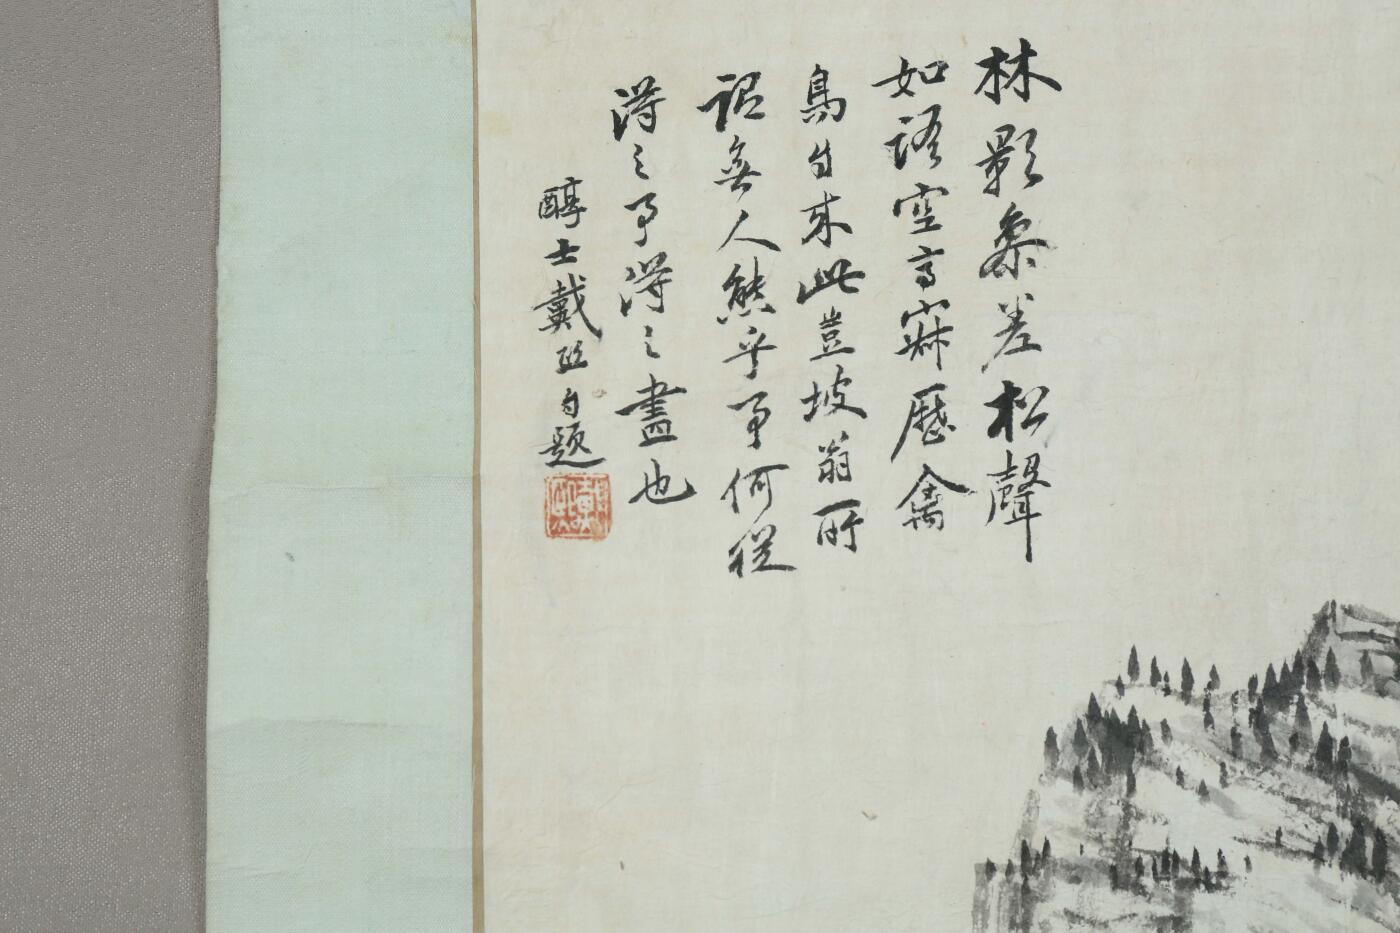 林影參差松聲
如語空亭寂歷禽
鳥自來此豈坡翁所
謂無人態乎予何從
得之予得之畫也
醇士戴熙自題